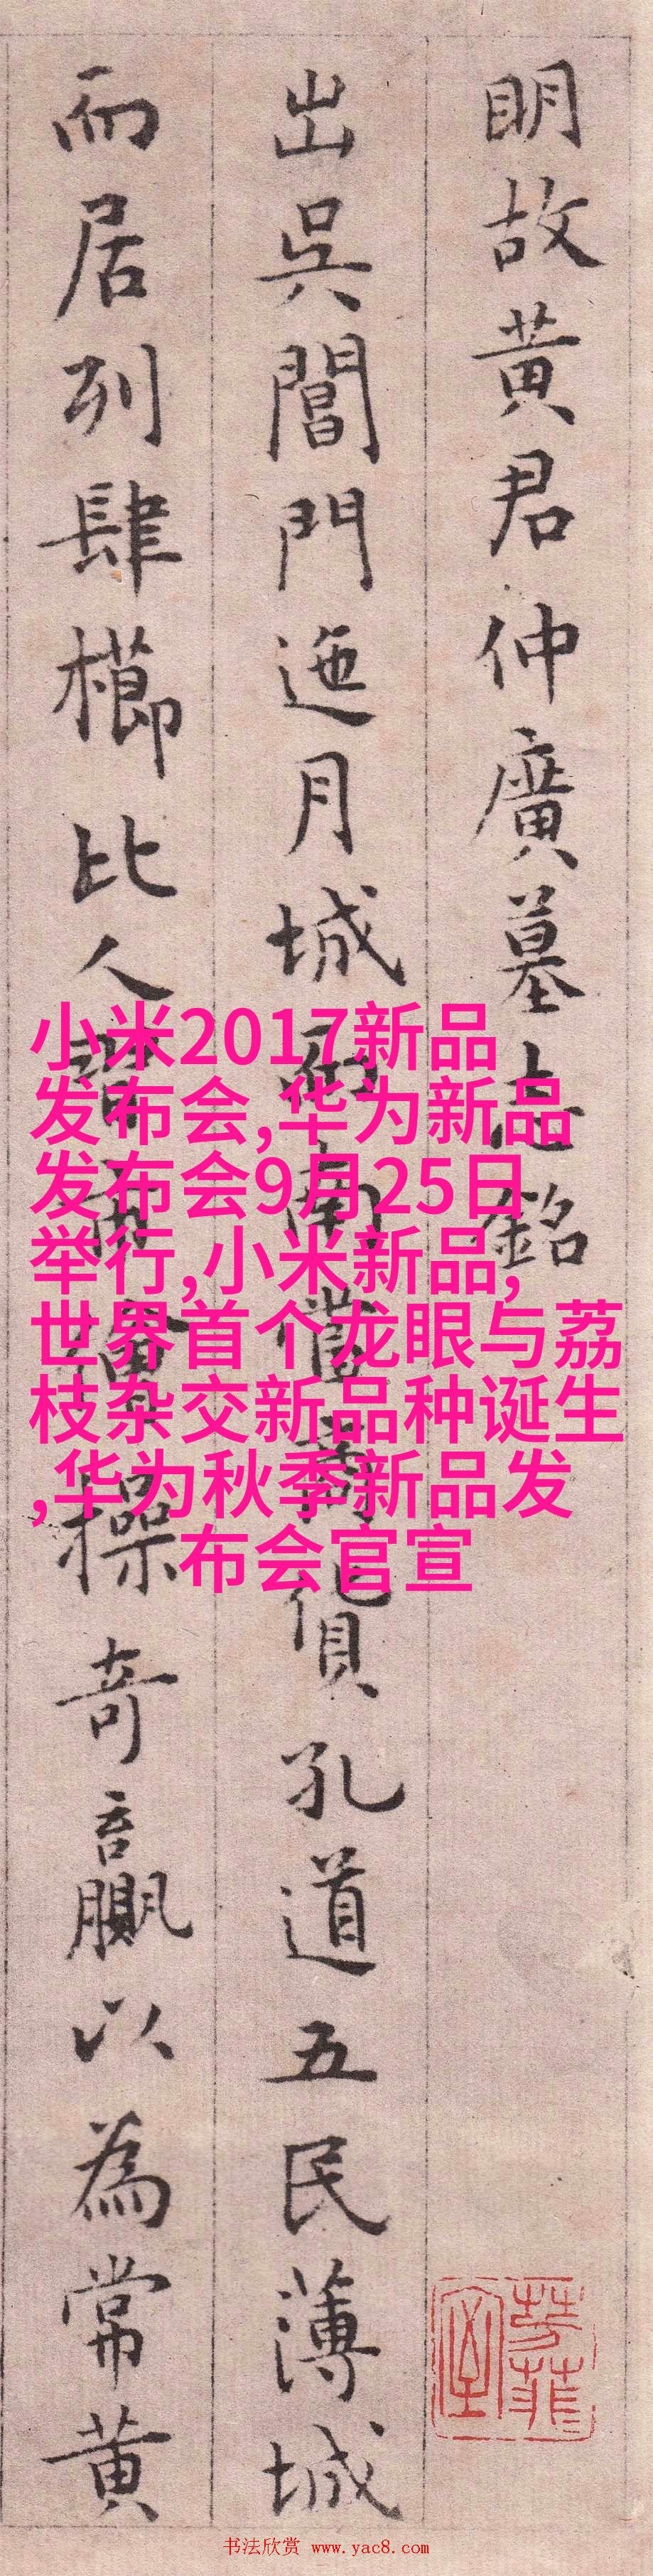 明故黄君仲廣墓志銘
出吳閶門迤月城而南當商貨孔道五民薄城
而居列肆櫛比人皆操奇贏以為常黄
小米2017新品
发布会,华为新品
发布会9月25日
举行,小米新品,
世界首个龙眼与荔
枝杂交新品种诞生
,华为秋季新品发
布会官宣
书法欣赏 www.yac8.com